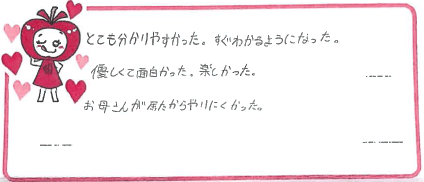 とても分かりやすかった。すぐわかるようになった。
優しくて面白かった。楽しかった。
お母さんが居たからやりにくかった。